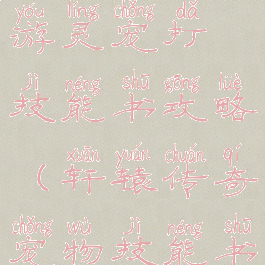 yóu líng chǒng dǎ
游灵宠打
jì néng shū gōng lüè
技能书攻略
xuān yuán chuán qí
（轩辕传奇
chǒng wù jì néng shū
宠物技能书